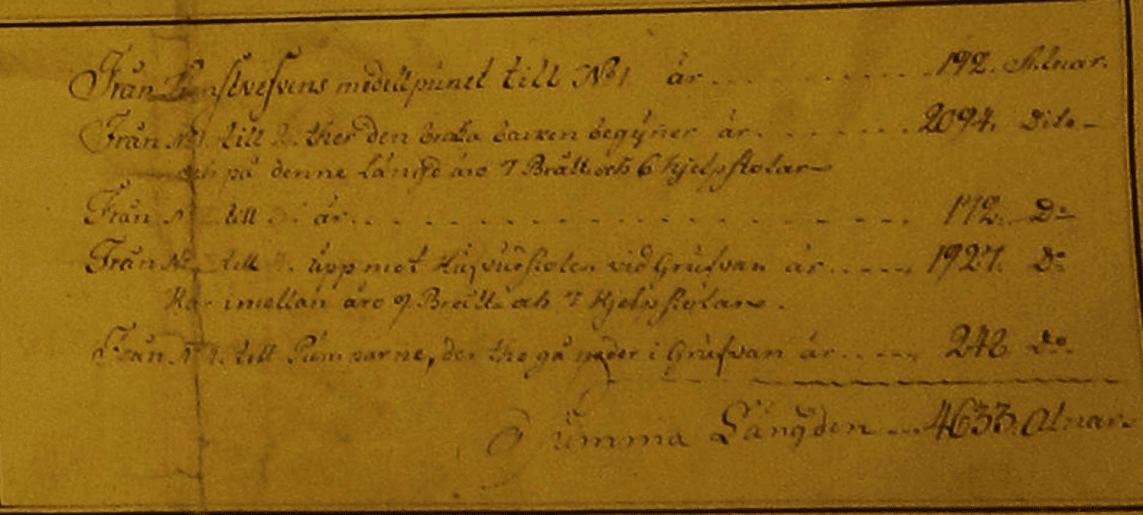 Från Konstvefvens medellpunct till No 1 är ......... 192. Alnar.
Från No 1. till 2. ther den brata backen begyñer är ....... 2094. Dito
och på denne längd äro 7 Brått och 6 Hjelpstolar
Från No till 3 är ........ 172. Do
Från No till 4. upp mot Hufvudstolen vid Grufvan är ..... 1927. Do
Här imellan äro 9. Brått och 7 Hjelpstolar.
Från No 4. till Pumparne, der the gå neder i Grufvan är ..... 248 Do
Summa Längden ... 4633. Alnar.